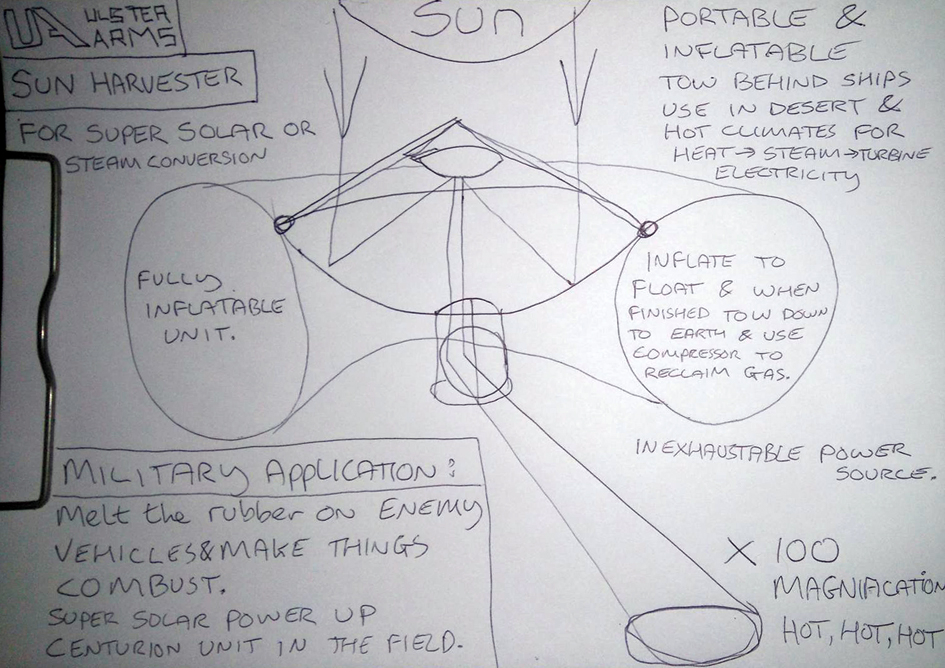 ULSTER
UA ARMS
SUN HARVESTER
FOR SUPER SOLAR OR
STEAM CONVERSION
SUN
PORTABLE &
INFLATABLE
TOW BEHIND SHIPS
USE IN DESERT &
HOT CLIMATES FOR
HEAT→STEAM→TURBINE
ELECTRICITY
FULLY
INFLATABLE
UNIT.
INFLATE TO
FLOAT & WHEN
FINISHED TOW DOWN
TO EARTH & USE
COMPRESSOR TO
RECLAIM GAS.
INEXHAUSTABLE POWER
SOURCE.
MILITARY APPLICATION:
Melt the rubber on ENEMY
VEHICLES&MAKE THINGS
COMBUST.
SUPER SOLAR POWER UP
CENTURION UNIT IN THE FIELD.
X 100
MAGNIFICATION
HOT, HOT, HOT